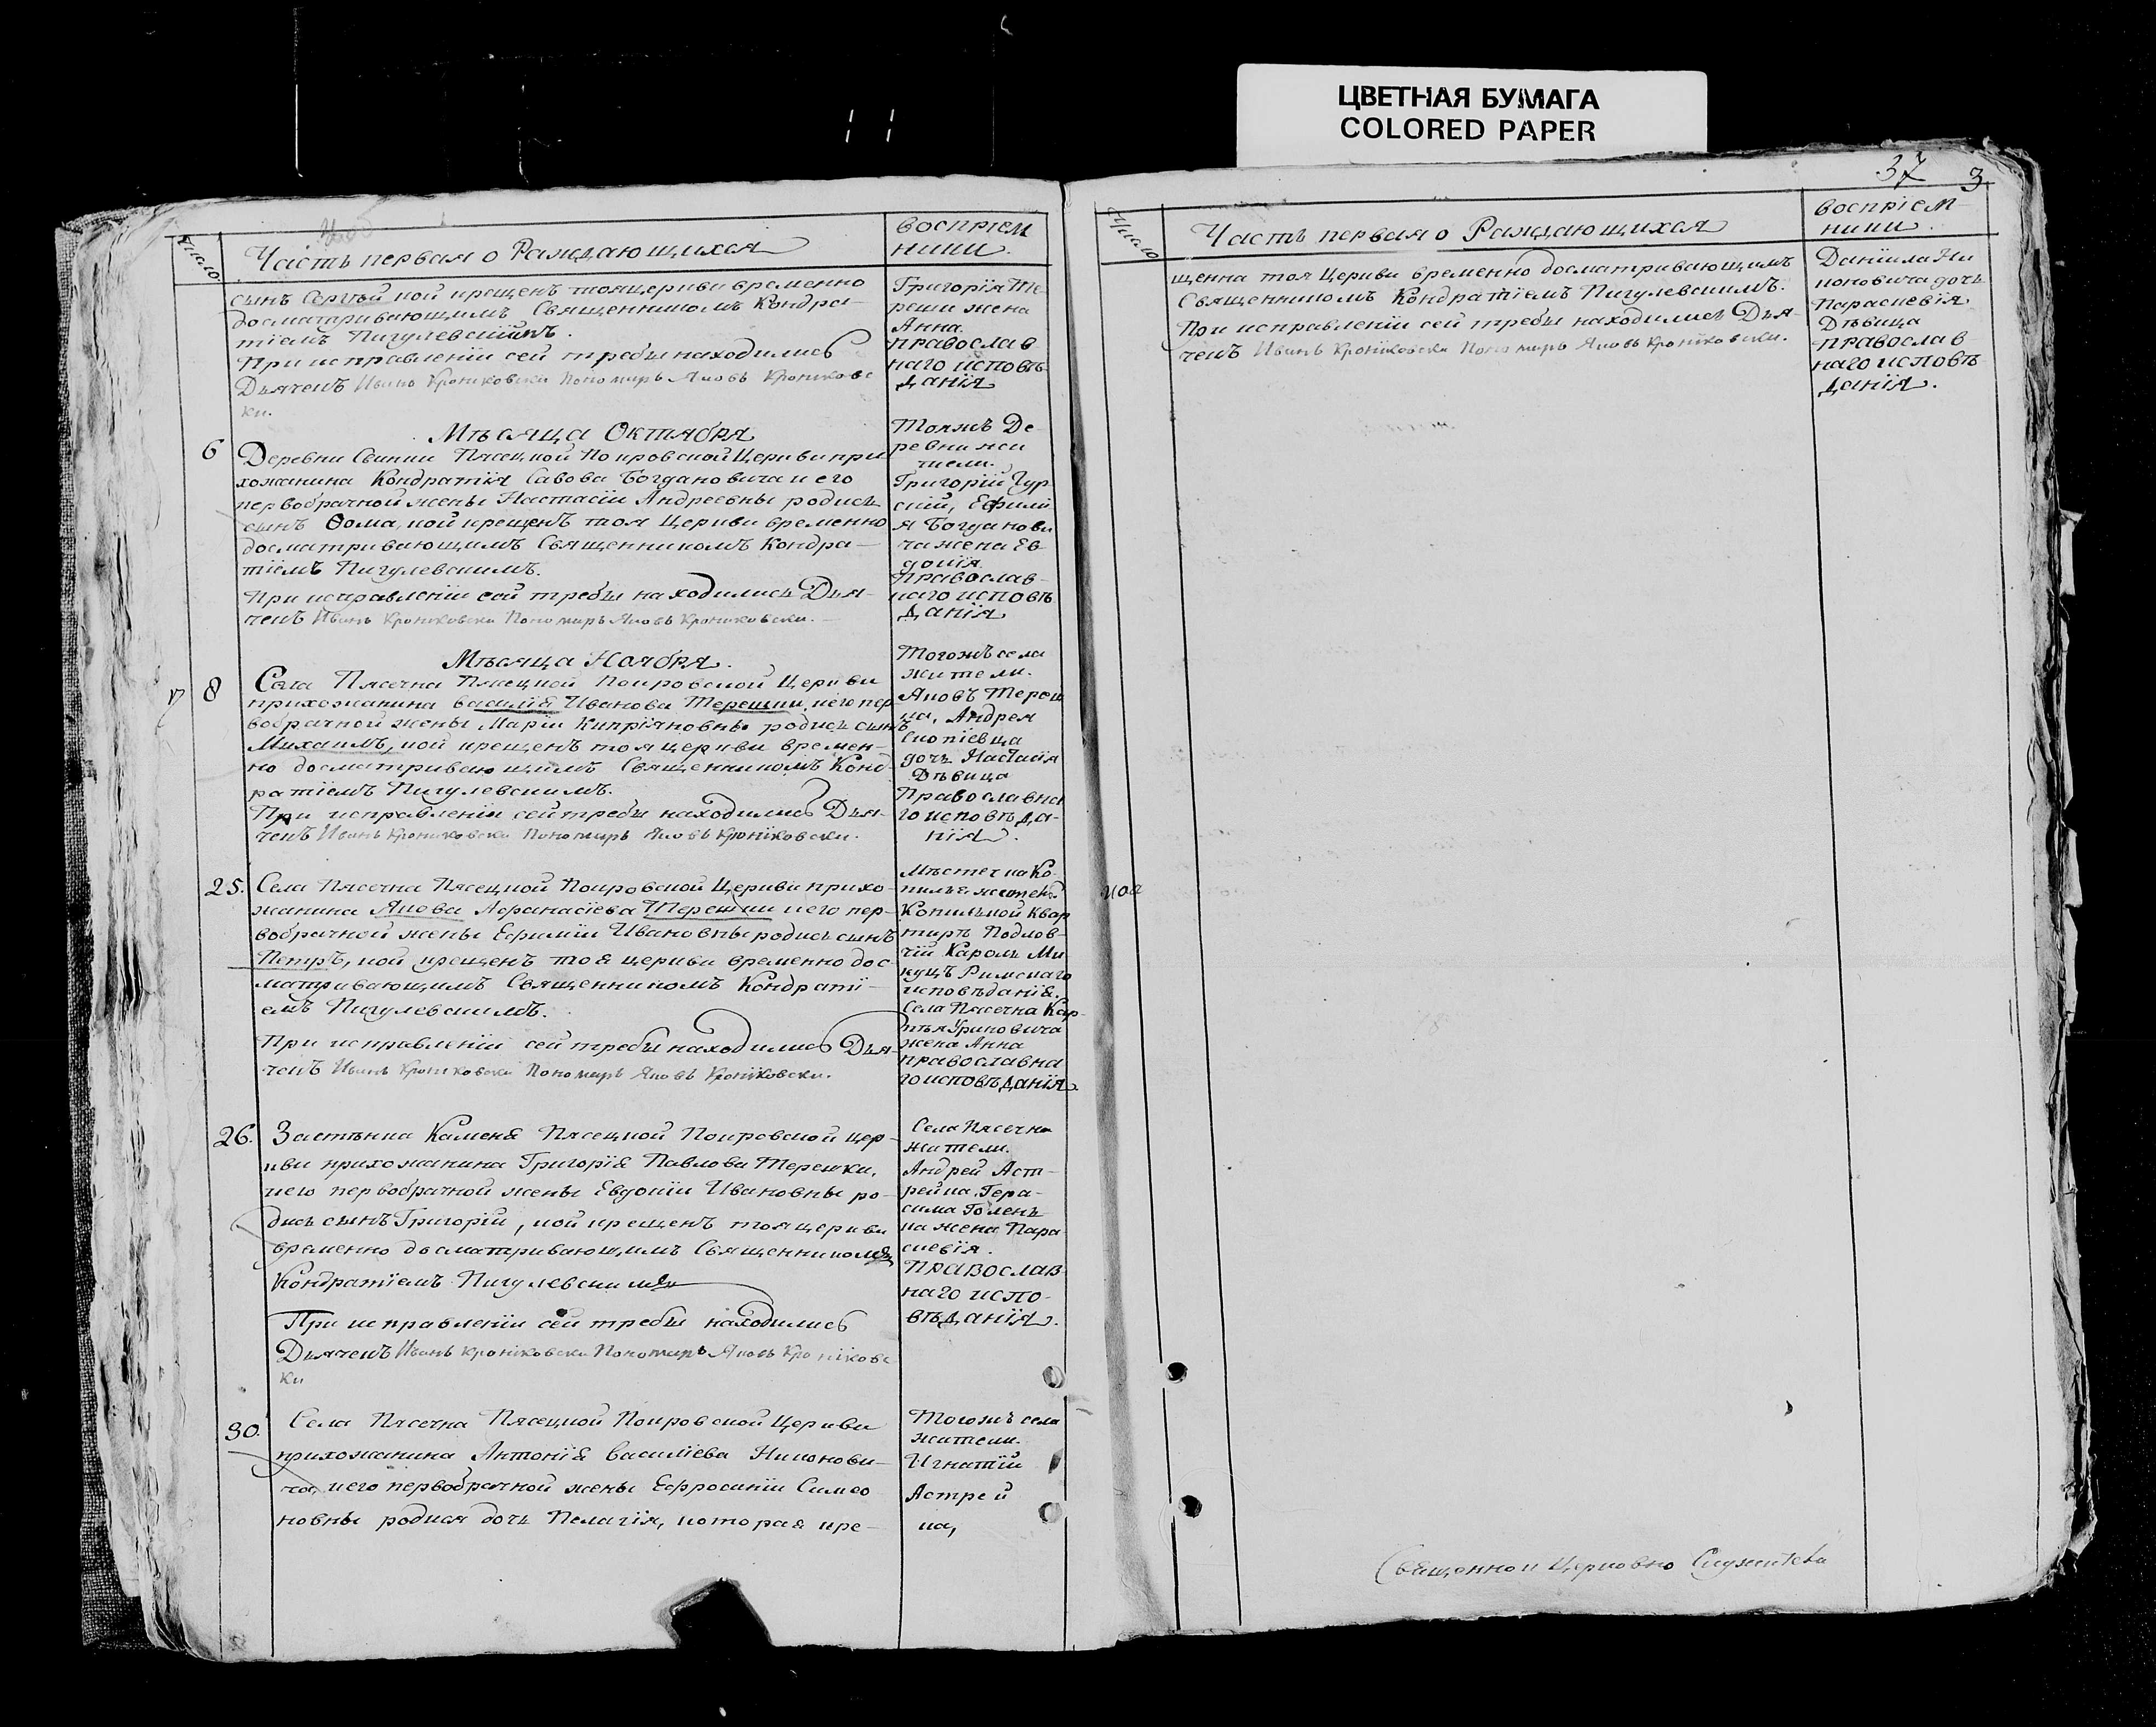 ЦВЕТНАЯ БУМАГА
COLORED PAPER
37 3
Число
Часть первая о Раждающихся
восприем
ники.
сынъ Сергѣй кой крещенъ тояцеркви временно
досматривающимъ Священникомъ Кондра-
тіемъ Пигулевскимъ.
При исправленіи сей требы находились
Дьячекъ Иванъ Крониковски Пономарь Яковъ Крониковс
ки.
Григорія Те-
решки жена
Анна.
православ
наго исповѣ-
данія
Мѣсяца Октября
6
Деревни Свинки Пясецкой Покровской Церкви при
хожанина Кондратія Савова Богдановича и его
первобрачной жены Настасіи Андреевны родись
сынъ Ѳома, кой крещенъ тоя Церкви временно
досматривающимъ Священникомъ Кондра-
тіемъ Пигулевскимъ.
При исправленіи сей требы находились Дья-
чекъ Иванъ Крониковски Пономарь Яковъ Крониковски.
Тояжъ Де-
ревни жи
тели.
Григорій Гур
скій, Ефимі
я Богданови
ча жена Ев-
докія
Православ-
наго исповѣ
данія
Мѣсяца Ноября.
8
Села Пясечна Пясецкой Покровской Церкви
прихожанина василія Иванова Терешки, иего пер
вобрачной жены Маріи Кипріяновны родись сынъ
Михаилъ, кой крещенъ тояцеркви времен-
но досматривающимъ Священникомъ Конд-
ратіемъ Пигулевскимъ.
При исправленіи сейтребы находились Дья-
чекъ Иванъ Крониковски Пономарь Яковъ Крониковски.
Тогожъ села
жители.
Яковъ Тереш
ка, Андрея
дочь Настасія
Дѣвица
Православна
го исповѣда-
нія.
25.
Села Пясечна Пясецкой Покровской Церкви прихо-
жанина Якова Афанасіева Терешки иего пер-
вобрачной жены Ефиміи Ивановны родись сынъ
Петръ, кой крещенъ тоя церкви временно дос-
матривающимъ Священникомъ Кондраті-
емъ Пигулевскимъ.
При исправленіи сей требы находились Дья-
чекъ Иванъ Крониковски Пономарь Яковъ Крониковски.
Мѣстечка Ко-
пыля жители
Копыльской Квар
тиръ Подлов-
чій Кароль Ми
куцъ Римскаго
исповѣданія.
Села Пясечна Кар-
пѣя Уриновича
жена Анна
православна
го исповѣданія
26.
Застѣнка Каменя Пясецкой Покровской цер-
кви прихожанина Григорія Павлова Терешки,
иего первобрачной жены Евдокіи Ивановны ро-
дись сынъ Григорій, кой крещенъ тояцеркви
временно досматривающимъ Священникомъ
Кондратіемъ Пигулевскимъ
При исправленіи сей требы находились
Дьячекъ Иванъ Крониковски Пономарь Яковъ Крониковс
ки
Села Пясечна
жители.
Андрей Аст-
рейка, Гера-
сима Голень
ка жена Пара
скевія.
православ
наго испо-
вѣданія.
30.
Села Пясечна Пясецкой Покровской Церкви
прихожанина Антонія Василіева Никонови-
ча, иего первобрачной жены Ефросиніи Симео
новны родися дочь Пелагія, которая кре-
Тогожъ села
жители.
Игнатій
Астрей
ка,
Число
Часть первая о Раждающихся
восприем-
ники.
щенна тоя Церкви временно досматривающимъ
Священникомъ Кондратіемъ Пигулевскимъ.
При исправленіи сей требы находились Дья-
чекъ Иванъ Крониковски Пономарь Яковъ Крониковски.
Даніила Ни
коновича дочь
Параскевія
Дѣвица
православ
наго исповѣ
данія.
Священнои Церковно Служители